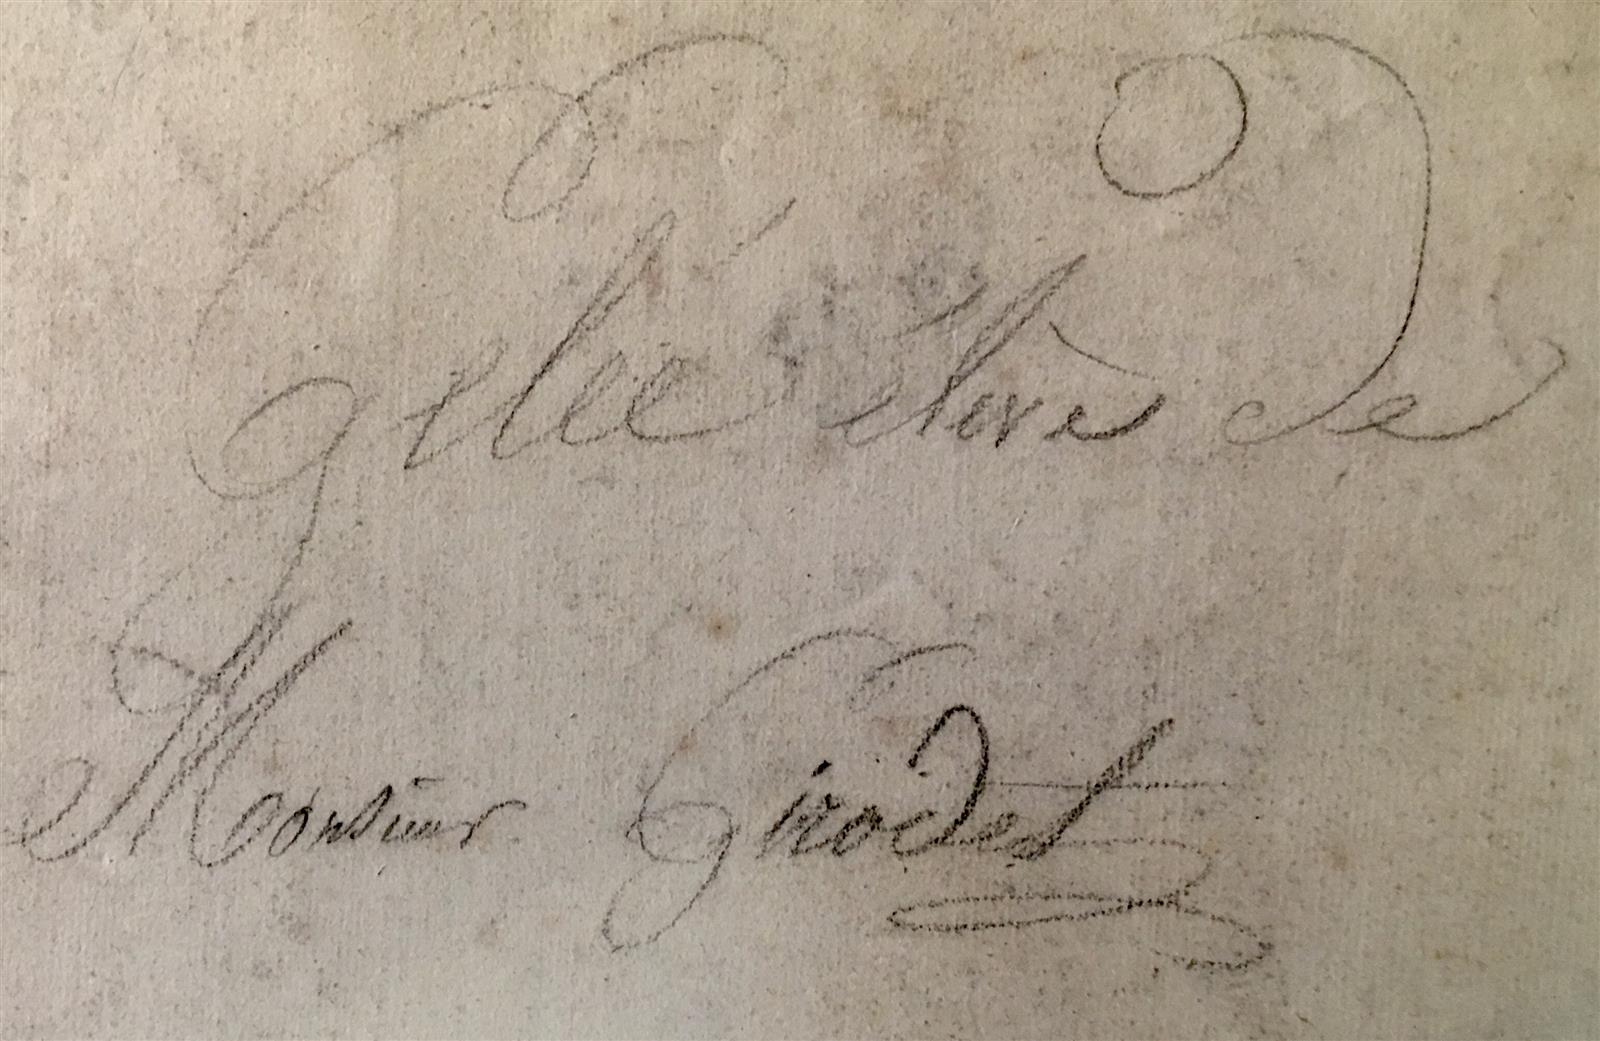 Gelée élève de
Monsieur Girodet